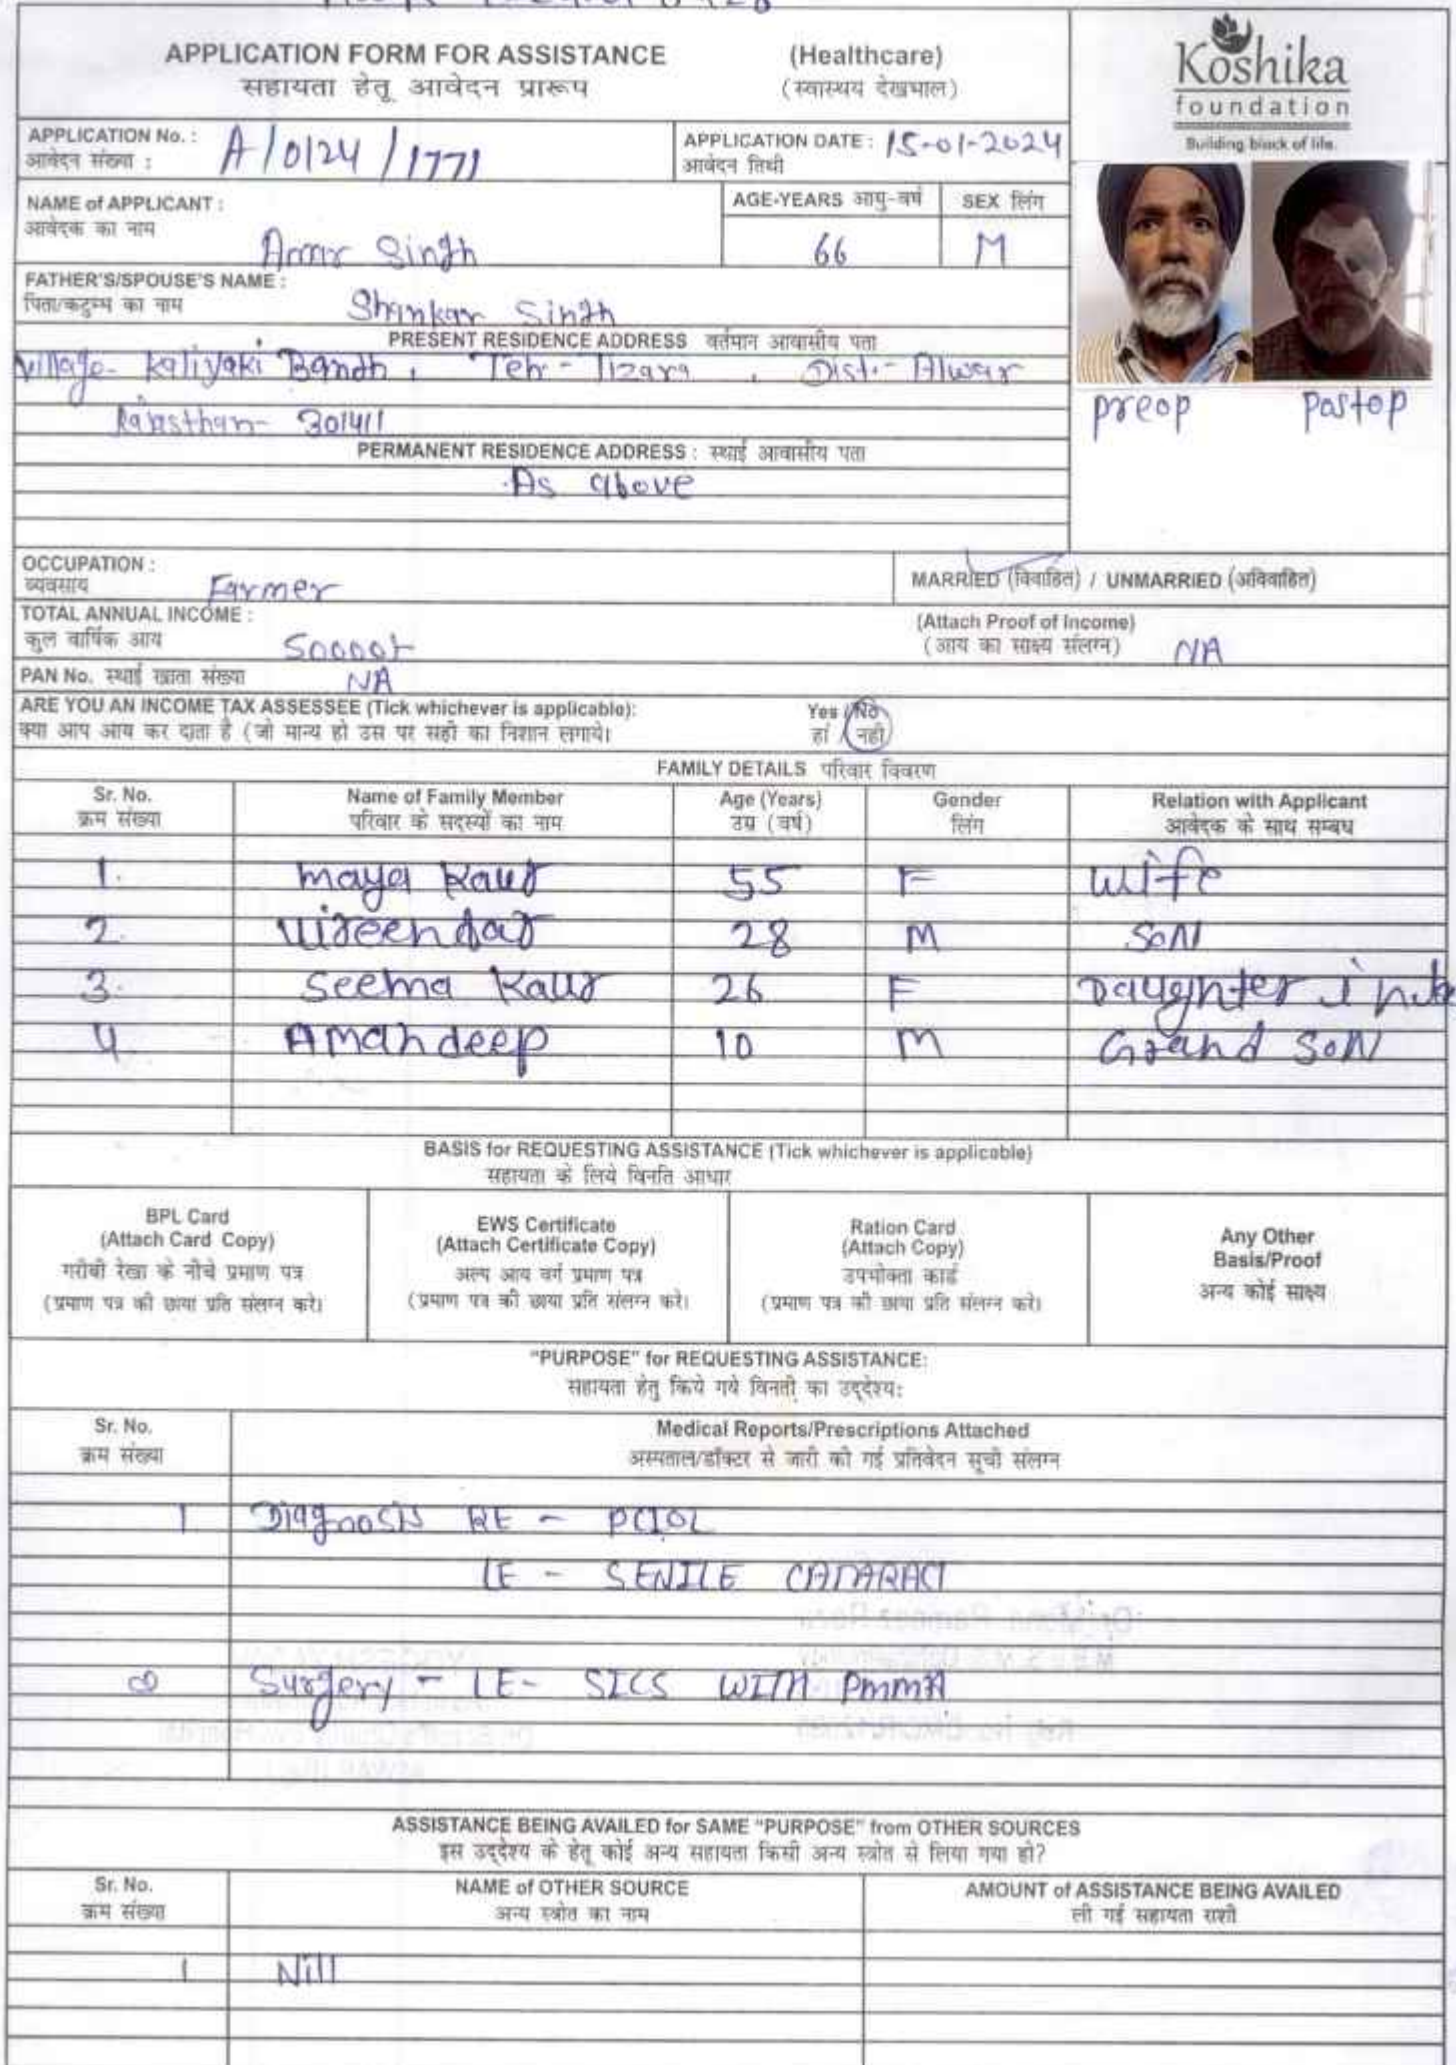 APPLICATION FORM FOR ASSISTANCE (Healthcare)
सहायता हेतू आवेदन प्रारूप (स्वास्थय देखभाल)
Koshika
foundation
Building block of life.
APPLICATION No. : A/0124/1771
आवेदन संख्या :
APPLICATION DATE : 15-01-2024
आवेदन तिथी
NAME of APPLICANT : Amar Singh
आवेदक का नाम
AGE-YEARS आयु-वर्ष 66
SEX लिंग M
FATHER'S/SPOUSE'S NAME : Shankar Singh
पिता/कटुम्ब का नाम
PRESENT RESIDENCE ADDRESS वर्तमान आवासीय पता
Village- Kaliyaki Bandh, Teh- Tizara, Dist- Alwar
Rajasthan- 301411
preop postop
PERMANENT RESIDENCE ADDRESS : स्थाई आवासीय पता
As above
OCCUPATION : Farmer
व्यवसाय
MARRIED (विवाहित) / UNMARRIED (अविवाहित)
TOTAL ANNUAL INCOME :
कुल वार्षिक आय
(Attach Proof of Income)
(आय का साक्ष्य संलग्न) NA
PAN No. स्थाई खाता संख्या NA
ARE YOU AN INCOME TAX ASSESSEE (Tick whichever is applicable): Yes / No
क्या आप आय कर दाता है (जो मान्य हो उस पर सही का निशान लगाये। हां / नही
FAMILY DETAILS परिवार विवरण
Sr. No. Name of Family Member Age (Years) Gender Relation with Applicant
क्रम संख्या परिवार के सदस्यों का नाम उम्र (वर्ष) लिंग आवेदक के साथ सम्बध
1. Maya Kaur 55 F Wife
2. Vireendar 28 M SON
3. Seema Kaur 26 F Daughter in
4 Amandeep 10 M Grand SON
BASIS for REQUESTING ASSISTANCE (Tick whichever is applicable)
सहायता के लिये विनति आधार
BPL Card
(Attach Card Copy)
गरीबी रेखा के नीचे प्रमाण पत्र
(प्रमाण पत्र की छाया प्रति संलग्न करे।
EWS Certificate
(Attach Certificate Copy)
अल्प आय वर्ग प्रमाण पत्र
(प्रमाण पत्र की छाया प्रति संलग्न करे।
Ration Card
(Attach Copy)
उपभोक्ता कार्ड
(प्रमाण पत्र की छाया प्रति संलग्न करे।
Any Other
Basis/Proof
अन्य कोई साक्ष्य
"PURPOSE" for REQUESTING ASSISTANCE:
सहायता हेतु किये गये विनती का उद्देश्य:
Sr. No. Medical Reports/Prescriptions Attached
क्रम संख्या अस्पताल/डॉक्टर से जारी की गई प्रतिवेदन सूची संलग्न
1 Diagnosis RE - PCIOL
LE - SENILE CATARACT
Surgery - LE- SICS WITH PMMA
ASSISTANCE BEING AVAILED for SAME "PURPOSE" from OTHER SOURCES
इस उद्देश्य के हेतू कोई अन्य सहायता किसी अन्य स्त्रोत से लिया गया हो?
Sr. No. NAME of OTHER SOURCE AMOUNT of ASSISTANCE BEING AVAILED
क्रम संख्या अन्य स्त्रोत का नाम ली गई सहायता राशी
1 Nill